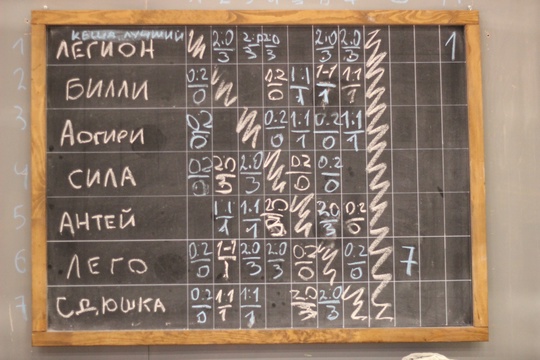 КЕША ЛУЧШИЙ
ЛЕГИОН 2:0/3 2:0/3 2:0/3 2:0/3 1
БИЛЛИ 0:2/0 0:2/0 1:1/1 1-1/1 1:1/1
Аогири 0:2/0 0:2/0 1:1/1 0:2/0 1:1/1
СИЛА 0:2/0 2:0/3 2:0/3 0:2/0 0:2/0
АНТЕЙ 1:1/1 1:1/1 2:0/3 2:0/3 0:2/0
ЛЕГО 0:2/0 1-1/1 2:0/3 2:0/3 0:2/0 0:2/0 7
СДЮШКА 0:2/0 1:1/1 1:1/1 2:0/3 2:0/3